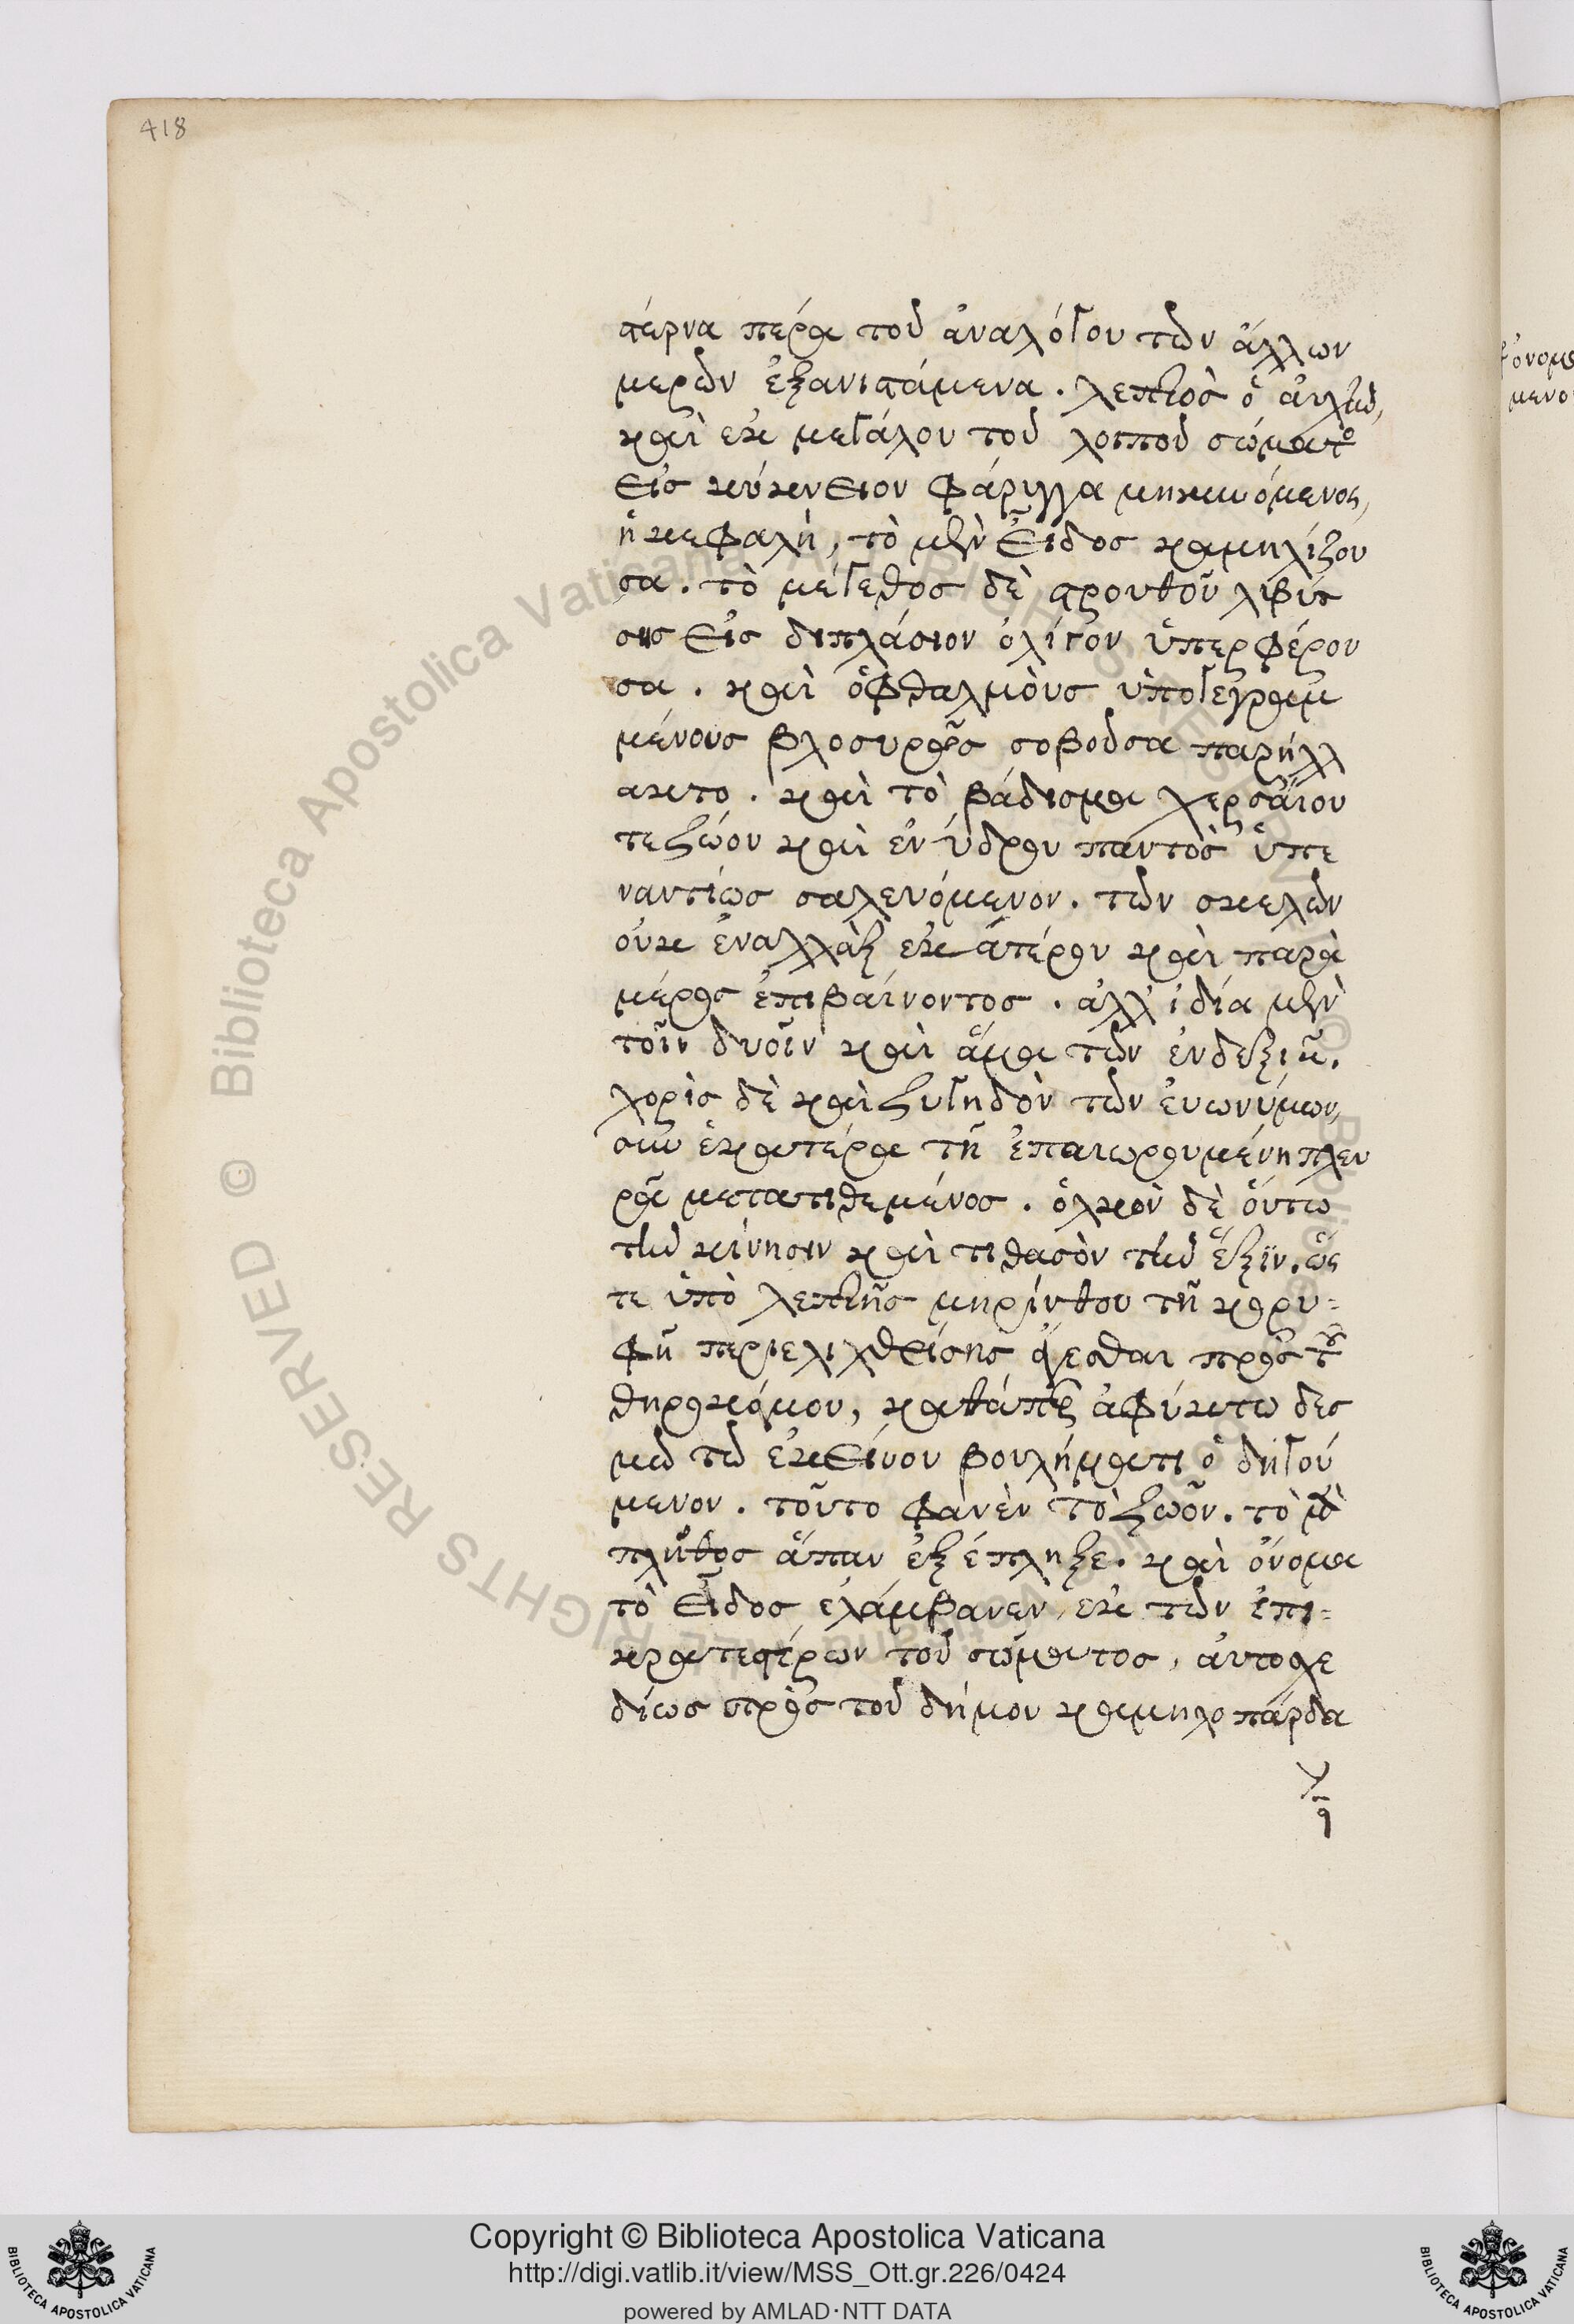 418
στέρνα πέρα τοῦ ἀναλόγου τῶν ἄλλων
μερῶν ἐξανιστάμενα. λεπτὸς ὁ αὐχὴν,
καὶ ἐκ μεγάλου τοῦ λοιποῦ σώματος
εἰς κύκνειον φάρυγγα μηκυνόμενος,
ἡ κεφαλὴ, τὸ μὲν εἶδος καμηλίζου
σα. τὸ μέγεθος δὲ στρουθοῦ λιβύσ
σης εἰς διπλάσιον ὀλίγον ὑπερφέρου
σα. καὶ ὀφθαλμοὺς ὑπογεγραμ
μένους βλοσυρῶς σοβοῦσα παρήλλ
ακτο. καὶ τὸ βάδισμα χερσαίου
τε ζώου καὶ ἐνύδρου παντὸς ὑπε
ναντίως σαλευόμενον. τῶν σκελῶν
οὐκ ἐναλλὰξ ἑκατέρου καὶ παρὰ
μέρος ἐπιβαίνοντος. ἀλλ' ἰδία μὲν
τοῖν δυοῖν καὶ ἅμα τῶν ἐν δεξιᾶ.
χορὶς δὲ καὶ ζυγηδὸν τῶν εὐωνύμων,
σὺν ἑκατέρα τῆ ἐπαιωρουμένη πλευ
ρᾶ μετατιθεμένος. ὁλκὸν δὲ οὕτω
τὴν κίνησιν καὶ τιθασὸν τὴν ἕξιν. ὥς
τε ὑπὸ λεπτῆς μηρίνθου τῆ κορυ-
φῆ περιελιχθείσης ἄγεσθαι πρὸς τοῦ
θηροκόμου, καθάπερ ἀφύκτω δεσ
μῶ τῶ ἐκείνου βουλήματι ὁδηγού
μενον. τοῦτο φανὲν τὸ ζῶον. τὸ μὲν
πλῆθος ἅπαν ἐξέπληξε. καὶ ὄνομα
τὸ εἶδος ἐλάμβανεν, ἐκ τῶν ἐπι-
κρατεστέρων τοῦ σώματος, αὐτοσχε
δίως πρὸς τοῦ δήμου καμηλοπάρδα
Copyright © Biblioteca Apostolica Vaticana
http://digi.vatlib.it/view/MSS_Ott.gr.226/0424
powered by AMLAD·NTT DATA